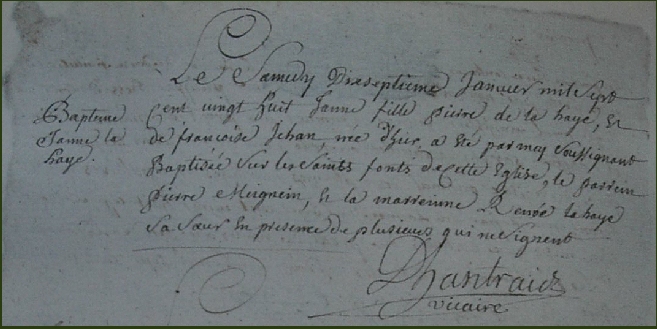 Le Samedy Dixseptieme Janvier mil Sept
Bapteme
Janne la
haye.
cent vingt huit Janne fille pierre de la haye, &
de francoise Jehan, née d'hier, a été par moy Soussignant
Baptisée Sur les Saints fonts de Cette Eglise, le parrein
pierre Meignein, & la marrenne Renée la haye
Sa Sœur En presence de plusieurs qui ne Signent
vicaire